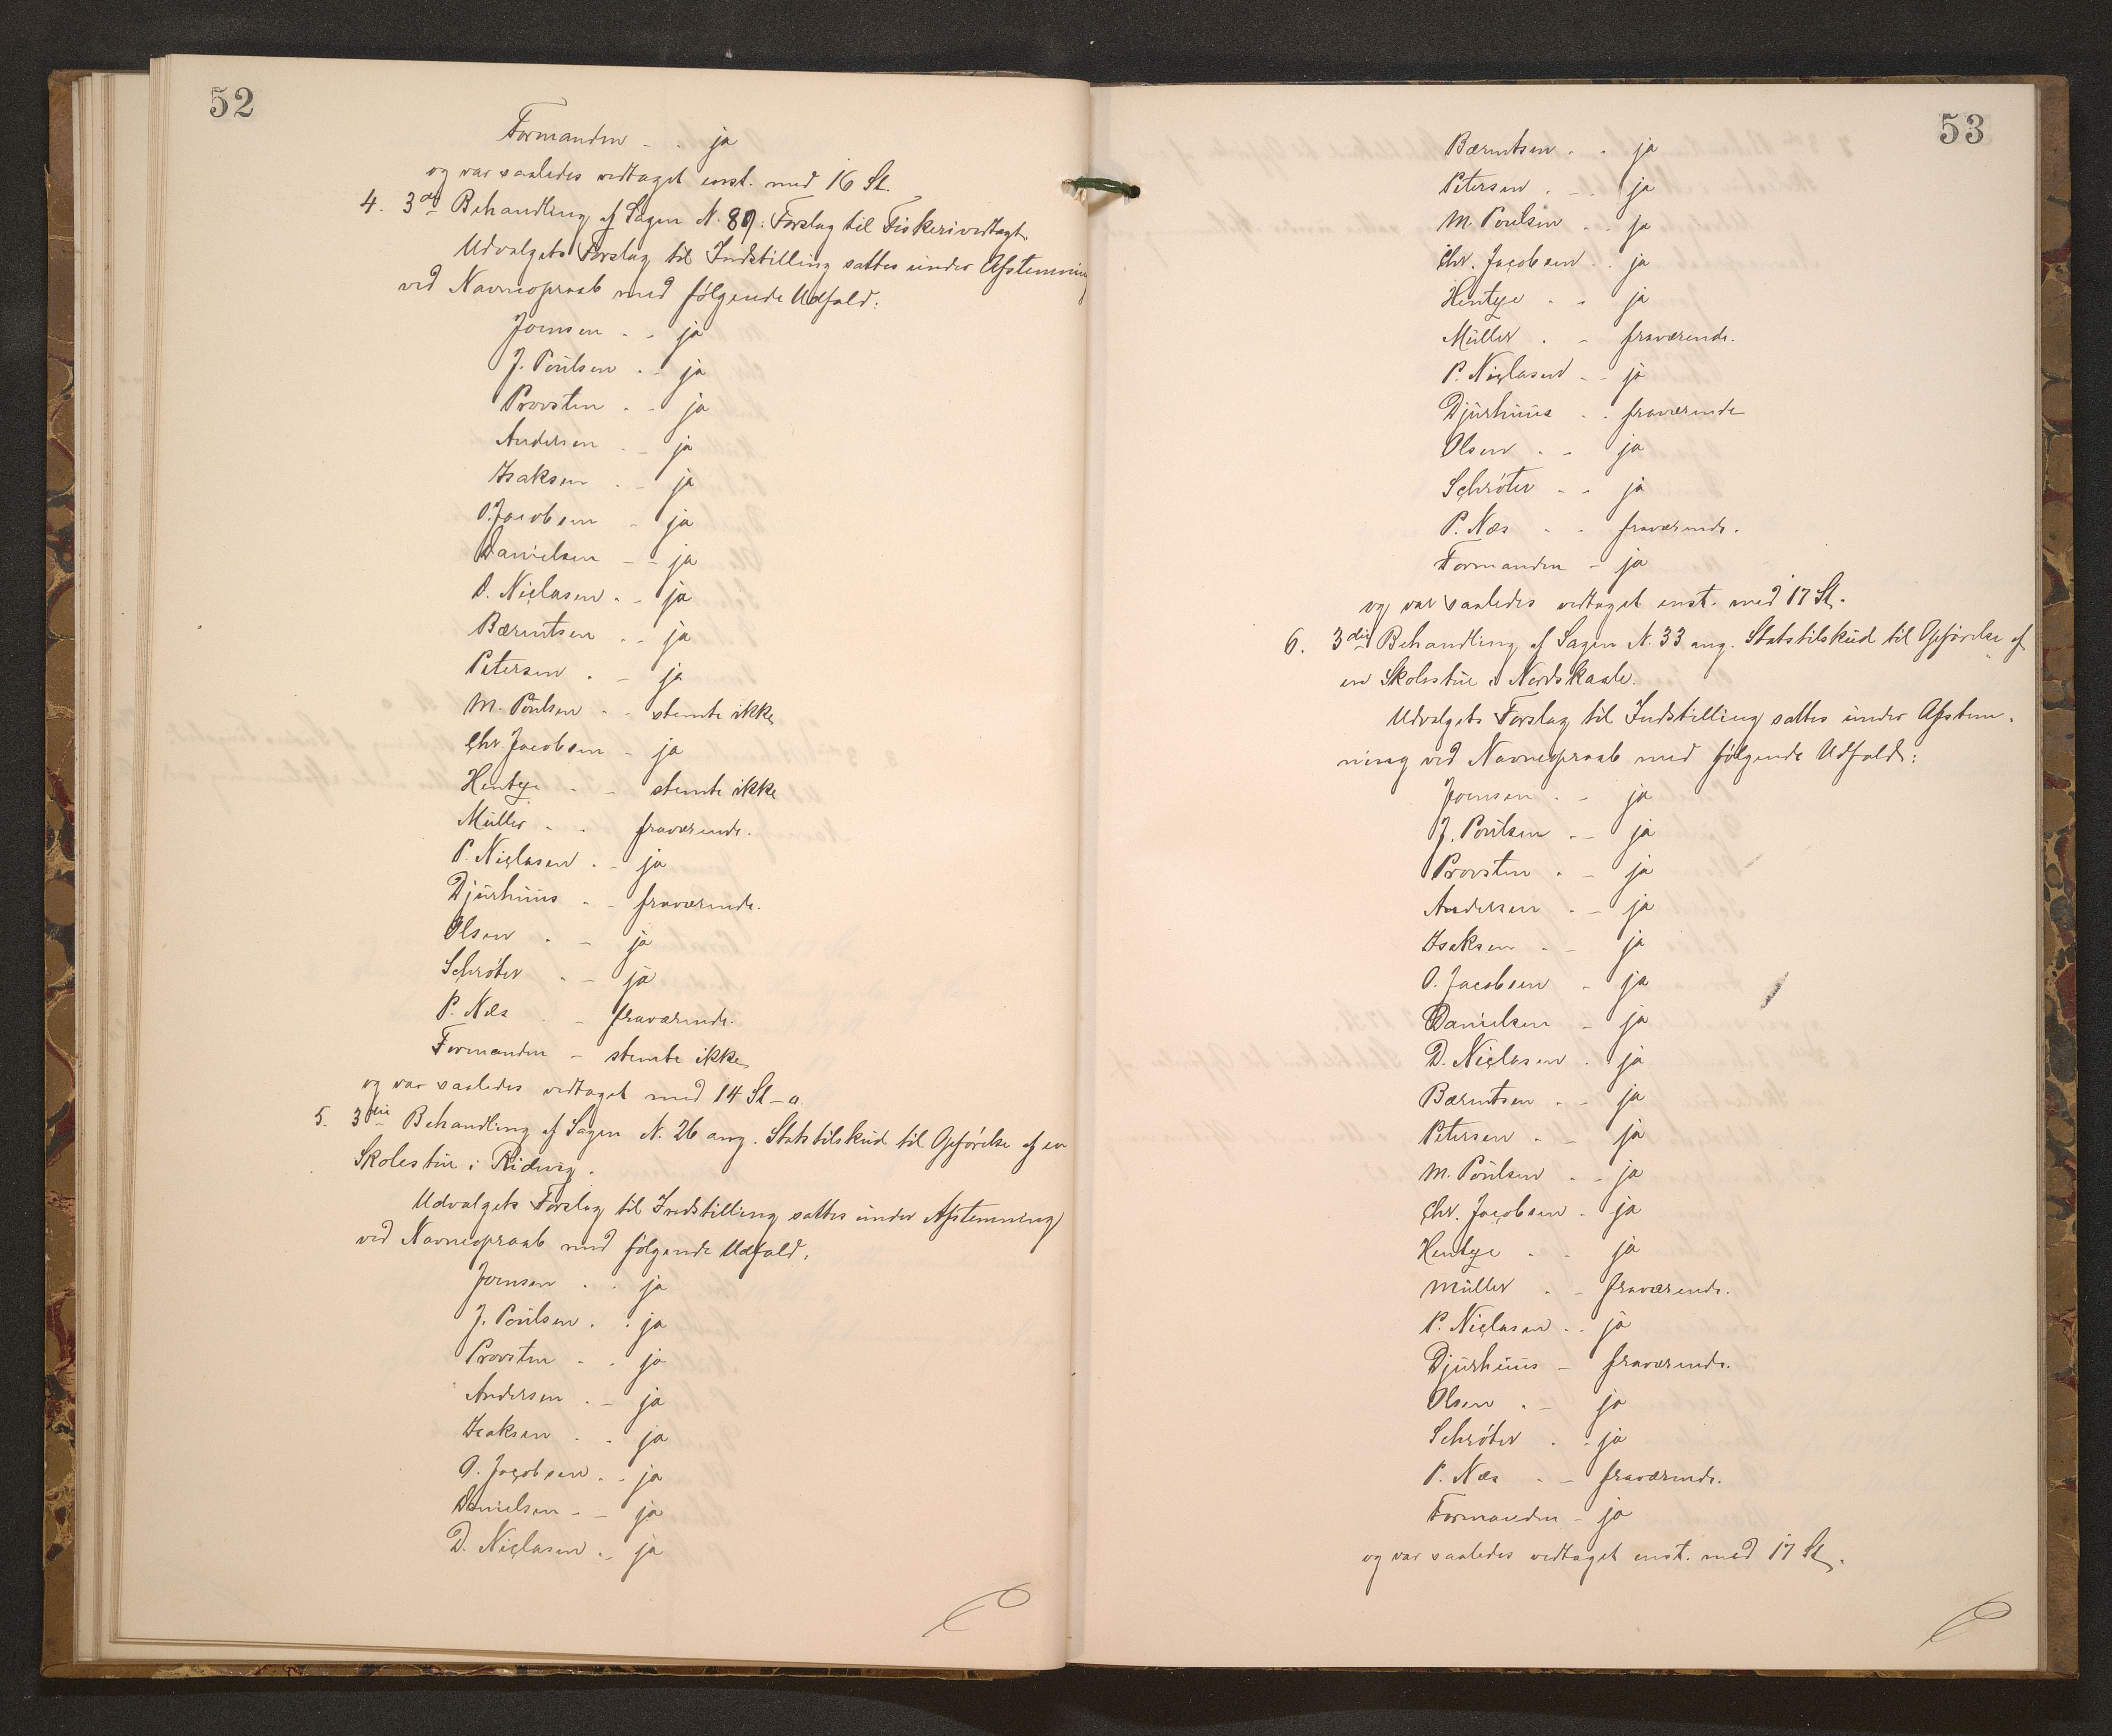 52
Formanden - . ja
og var saaledes vedtaget enst. med 16 St.
4. 3die Behandling af Sagen N. 89: Forslag til Fiskerivedtægt.
Udvalgets Forslag til Indstilling sattes under Afstemning
ved Navneopraab med følgende Udfald:
Joensen . - ja
J. Poulsen . - ja
Provsten . - ja
Andersen . - ja
Isaksen . - ja
O. Jacobsen - ja
Danielsen - - ja
D. Niclasen . - ja
Bærentsen . - ja
Petersen . - ja
M. Poulsen . - stemte ikke
Chr. Jacobsen - ja
Hentze . - stemte ikke
Müller . . fraværende.
P. Niclasen . - ja
Djurhuus . - fraværende.
Olsen . - ja
Schrøter . - ja
P. Næs . - fraværende.
Formanden - stemte ikke
og var saaledes vedtaget med 14 St - o
5. 3die Behandling af Sagen N. 26 ang. Statstilskud til Opførelse af en
Skolestue i Ridevig.
Udvalgets Forslag til Indstilling sattes under Afstemning
ved Navneopraab med følgende Udfald.
Joensen . . ja
J. Poulsen . . ja
Provsten - . ja
Andersen . - ja
Isaksen . . ja
O. Jacobsen . - ja
Danielsen - - ja
D. Niclasen . - ja
53
Bærentsen . . ja
Petersen . - ja
M Poulsen . . ja
Chr. Jacobsen . . ja
Hentze . - ja
Müller . - fraværende.
P. Niclasen - - ja
Djurhuus . . fraværende
Olsen . - ja
Schrøter . - ja
P. Næs . . fraværende.
Formanden - ja
og var saaledes vedtaget enst. med 17 St.
6. 3die Behandling af Sagen N. 33 ang. Statstilskud til Opførelse af
en Skolestue i Nordskaale.
Udvalgets Forslag til Indstilling sattes under Afstem-
ning ved Navneopraab med følgende Udfald:
Joensen . - ja
J. Poulsen . - ja
Provsten . - ja
Andersen . - ja
Isaksen . - ja
O. Jacobsen - ja
Danielsen - ja
D. Niclasen . ja
Bærentsen . - ja
Petersen . - ja
M. Poulsen . - ja
Chr. Jacobsen . ja
Hentze . . ja
Müller . - fraværende.
P. Niclasen . . ja
Djurhuus - fraværende.
Olsen . - ja
Schrøter . - ja
P. Næs . - fraværende.
Formanden - ja
og var saaledes vedtaget enst. med 17 St.